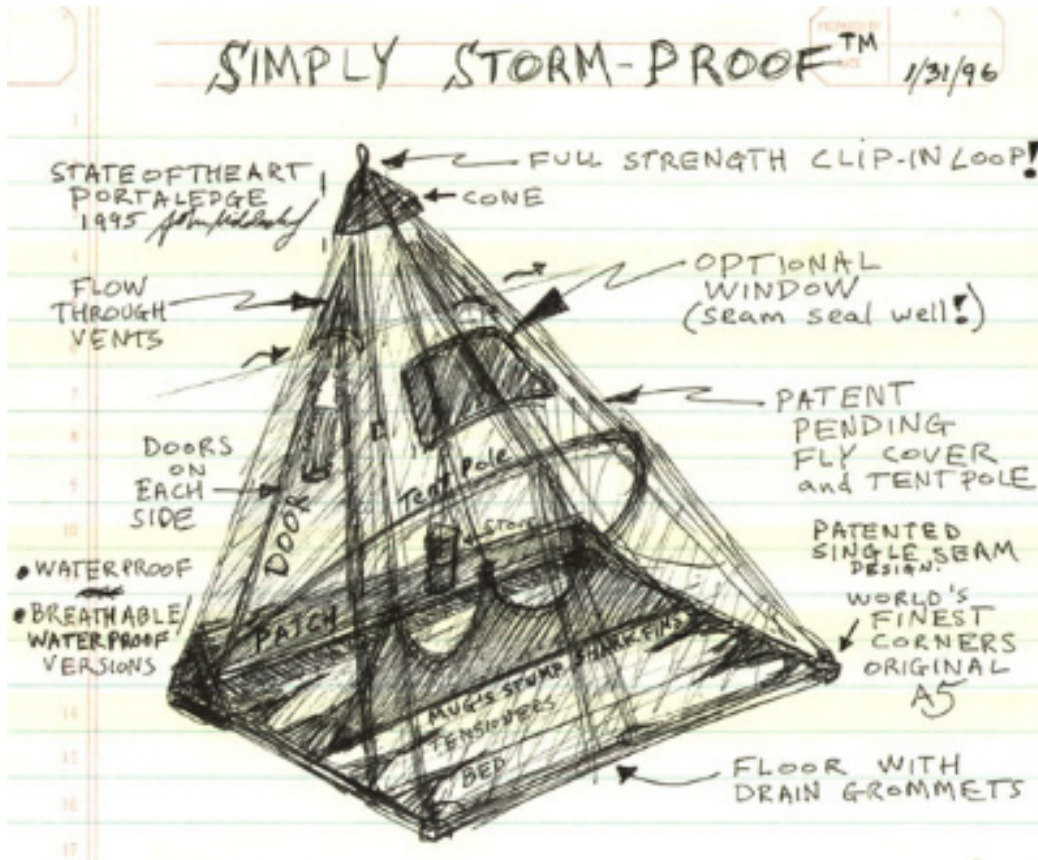 SIMPLY STORM-PROOF™
1/31/96
PREPARED BY
DATE
FULL STRENGTH CLIP-IN LOOP!
STATE OF THE ART
PORTALEDGE
1995
CONE
FLOW
THROUGH
VENTS
OPTIONAL
WINDOW
(seam seal well!)
PATENT
PENDING
FLY COVER
and TENT POLE
DOORS
ON
EACH
SIDE
DOOR
Tent Pole
STOVE
PATENTED
SINGLE SEAM
DESIGN.
• WATERPROOF
• BREATHABLE/
WATERPROOF
VERSIONS
WORLD'S
FINEST
CORNERS
ORIGINAL
A5
PATCH
MUG'S STUMP SHARK FINS
TENSIONERS
BED
FLOOR WITH
DRAIN GROMMETS
1
4
7
8
9
10
14
15
16
17